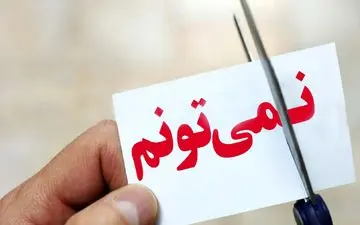 نمی‌تونم